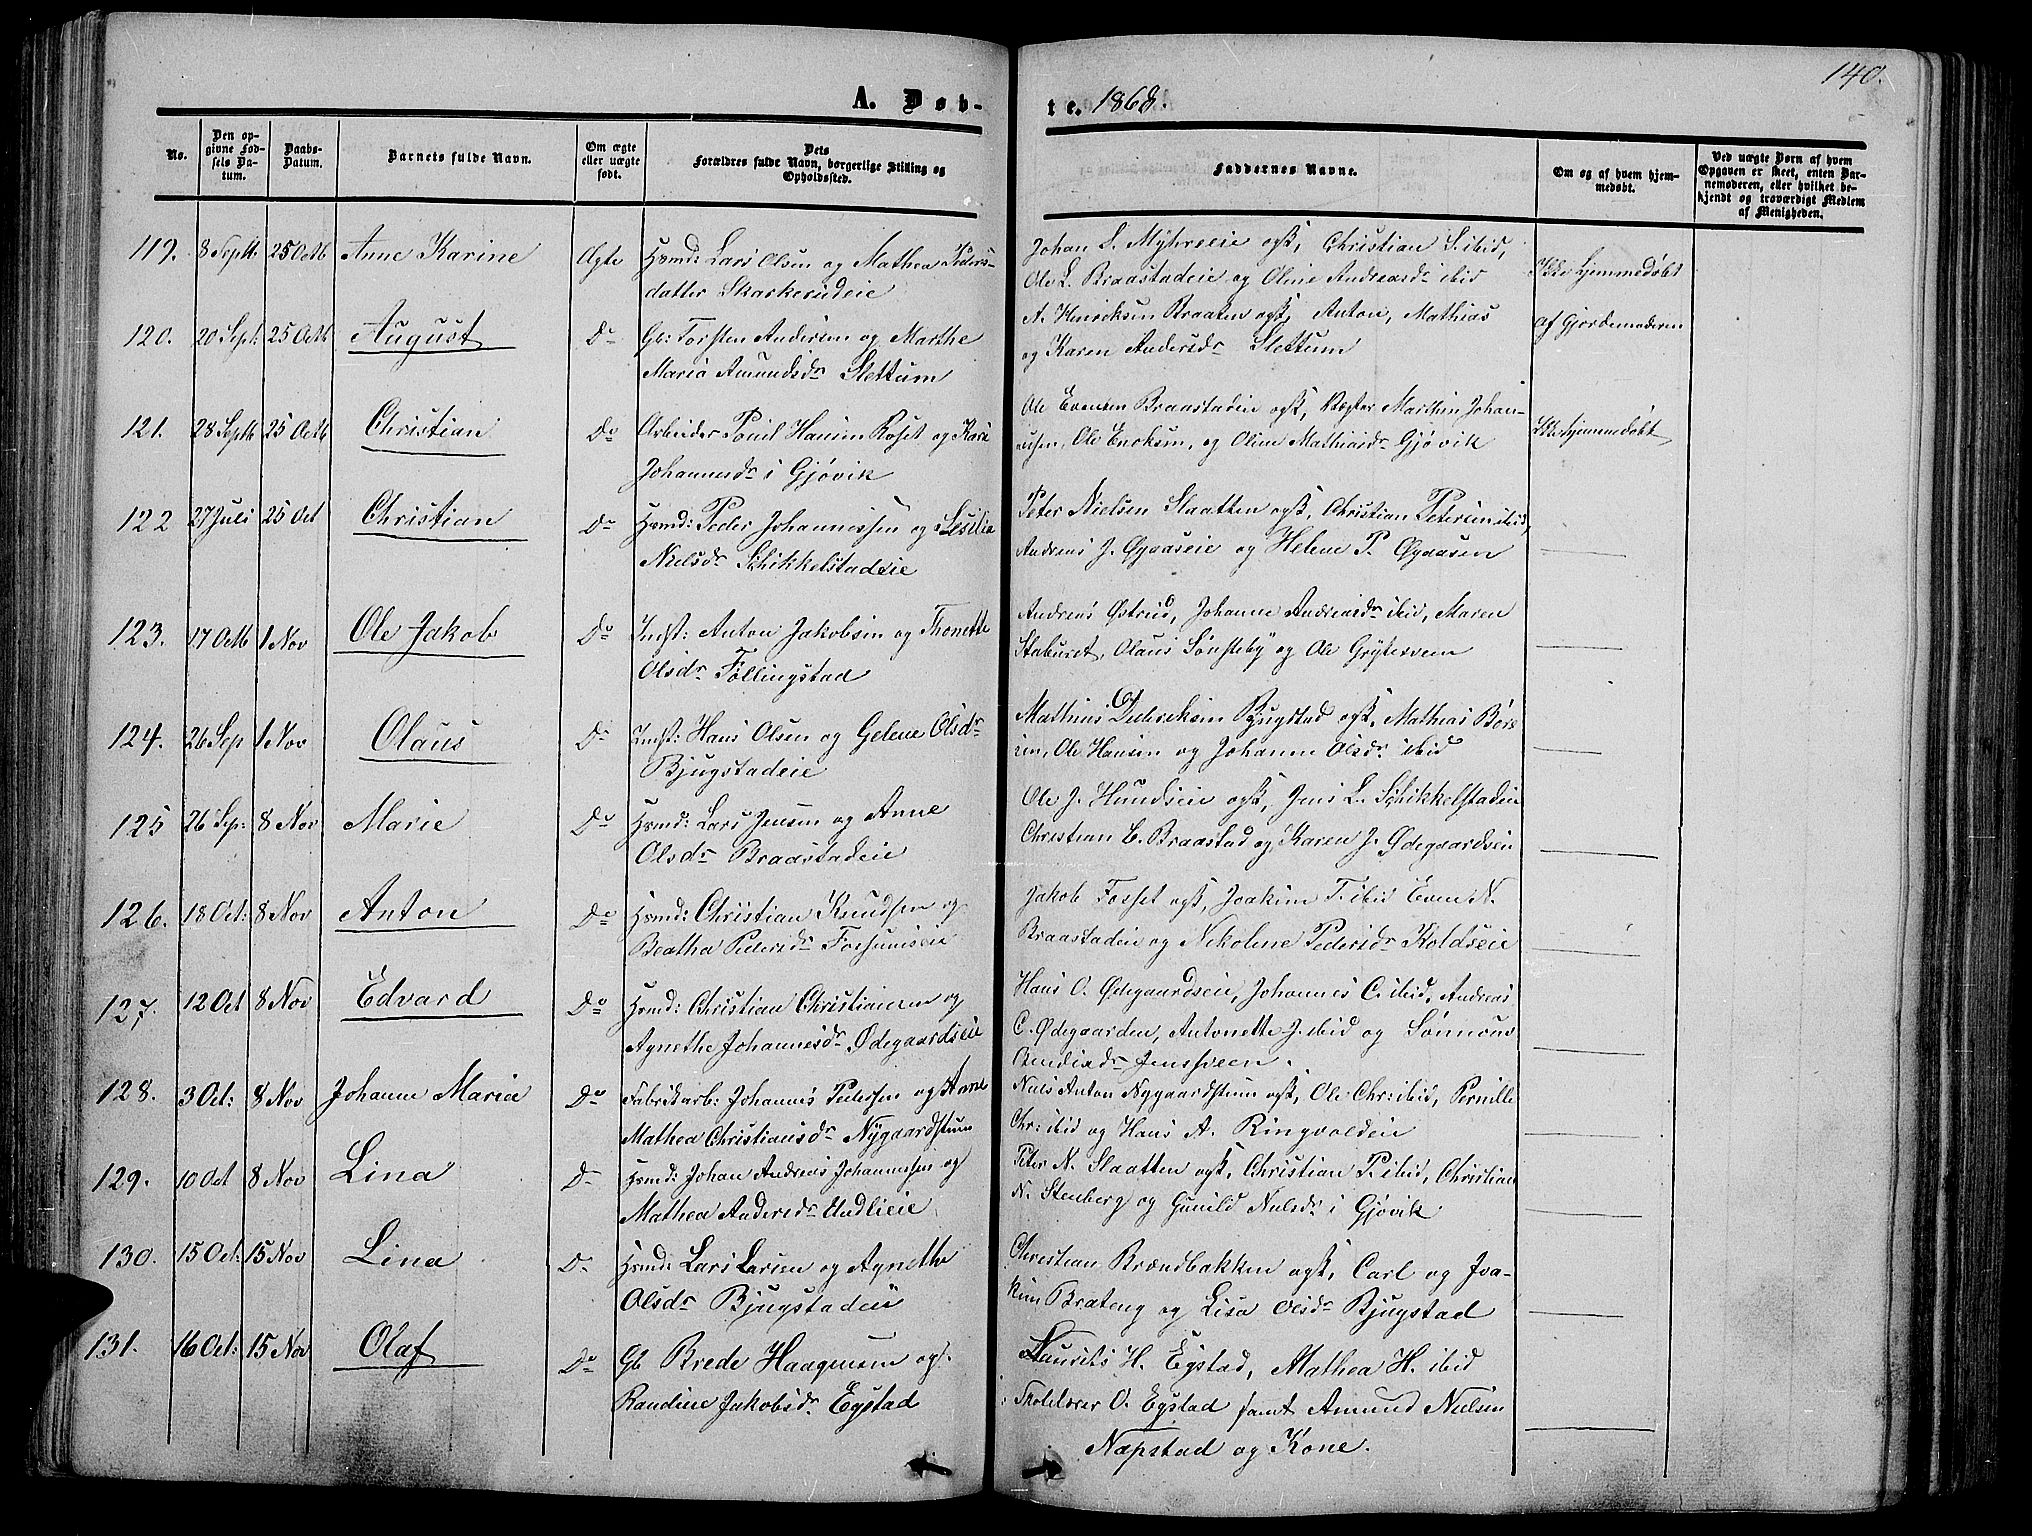 140.
A. Døb-
te. 1868.
No.
Den op-
givne Fød-
sels Da-
tum.
Daabs-
Datum.
Barnets fulde Navn.
Om ægte
eller uægte
født.
Dets
Forældres fulde Navn, borgerlige Stilling og
Opholdssted.
Faddernes Navne.
Om og af hvem hjem-
medøbt.
Ved uægte Børn af hvem
Opgaven er skeet, enten Bar-
nemoderen, eller hvilket be-
kjendt og troværdigt Medlem
af Menigheden.
119. 8 Septb. 25 Octb Anne Karine Ægte Hsmd: Lars Olsen og Mathea Peders-
datter Skarkerudeie
Johan L. Myhrseie ogsk, Christian L. ibid,
Ole L. Braastadeie og Oline Andreasdr ibid
Ikke hjemmedøbt
120. 20 Sept: 25 Octb August Do Gb: Torsten Andersen og Marthe
Maria Amundsdr Slettum
A. Henriksen Braaten ogsk, Anton, Mathias
og Karen Andersdr Slettum
af Gjordemoderen
121. 28 Septb 25 Octb Christian Do Arbeider Poul Hansen Roset og Kari
Johannesdr i Gjøvik
Ole Evensen Braastadeie ogsk, Vægter Marthin Johan-
nesen, Ole Eriksen, og Oline Mathiasdr Gjøvik
Ikke hjemmedøbt
122 27 Juli 25 Oct Christian Do Hsmd: Peder Johannessen og Sesilie
Nielsdr Schikkelstadeie
Peter Nielsen Slaatten ogsk, Christian Petersen ibid,
Andreas J. Øyaaseie og Helene P. Øyaasen
123. 17 Octb 1 Nov Ole Jakob Do Indst: Anton Jakobsen og Thonette
Olsdr Føllingstad
Andreas Østrud, Johanne Andreasdr ibid, Maren
Staburet, Olaus Sønsteby og Ole Grytesveen
124. 26 Sep 1 Nov Olaus Do Indst: Hans Olsen og Gelene Olsdr
Bjugstadeie
Mathias Dideriksen Bjugstad ogsk, Mathias Børe
sen, Ole Hansen og Johanne Olsdr ibid
125 26 Sep: 8 Nov Marie Do Hsmd: Lars Jensen og Anne
Olsdr Braastadeie
Ole J. Hundseie ogsk, Jens L. Schikkelstadeie
Christian E. Braastad og Karen J. Ødegaardseie
126. 18 Oct: 8 Nov Anton Do Hsmd: Christian Knudsen og
Beatha Pedersdr Forsumseie
Jakob Fosset ogsk, Joakim F. ibid Even N.
Braastadeie og Nikoline Pedersdr Koldseie
127. 12 Oct 8 Nov Edvard Do Hsmd: Christian Christiansen og
Agnethe Johannesdr Ødegaardseie
Hans O. Ødegaardseie, Johannes C. ibid, Andreas
C. Ødegaarden, Antonette J. ibid og
Jensveen.
128. 3 Oct: 8 Nov Johanne Maria Do Fabrikarb: Johannes Pedersen og Anne
Mathea Christiansdr Nygaardstuen
Niels Anton Nygaardstuen ogsk, Ole Chr: ibid, Pernille
Chr: ibid og Hans A. Ringvoldeie
129. 10 Oct 8 Nov Lina Do Hsmd: Johan Andreas Johannesen og
Mathea Andersdr Undlieie
Peter N. Slaatten ogsk, Christian P. ibid, Christian
N. Stenberg og Gunild Nielsdr i Gjøvik
130. 15 Oct: 15 Nov Lina Do Hsmd: Lars Larsen og Agnethe
Olsdr Bjugstadeie
Christian Brændbakken ogsk, Carl og Joa-
kim Brateng og Lisa Olsdr Bjugstad
131. 16 Oct: 15 Nov Olaf Do Gb Brede Haagensen og
Randine Jakobsdr Egstad
Laurits H. Egstad, Mathea H. ibid
O. Egstad samt Amund Nielsen
Næpstad og Kone.